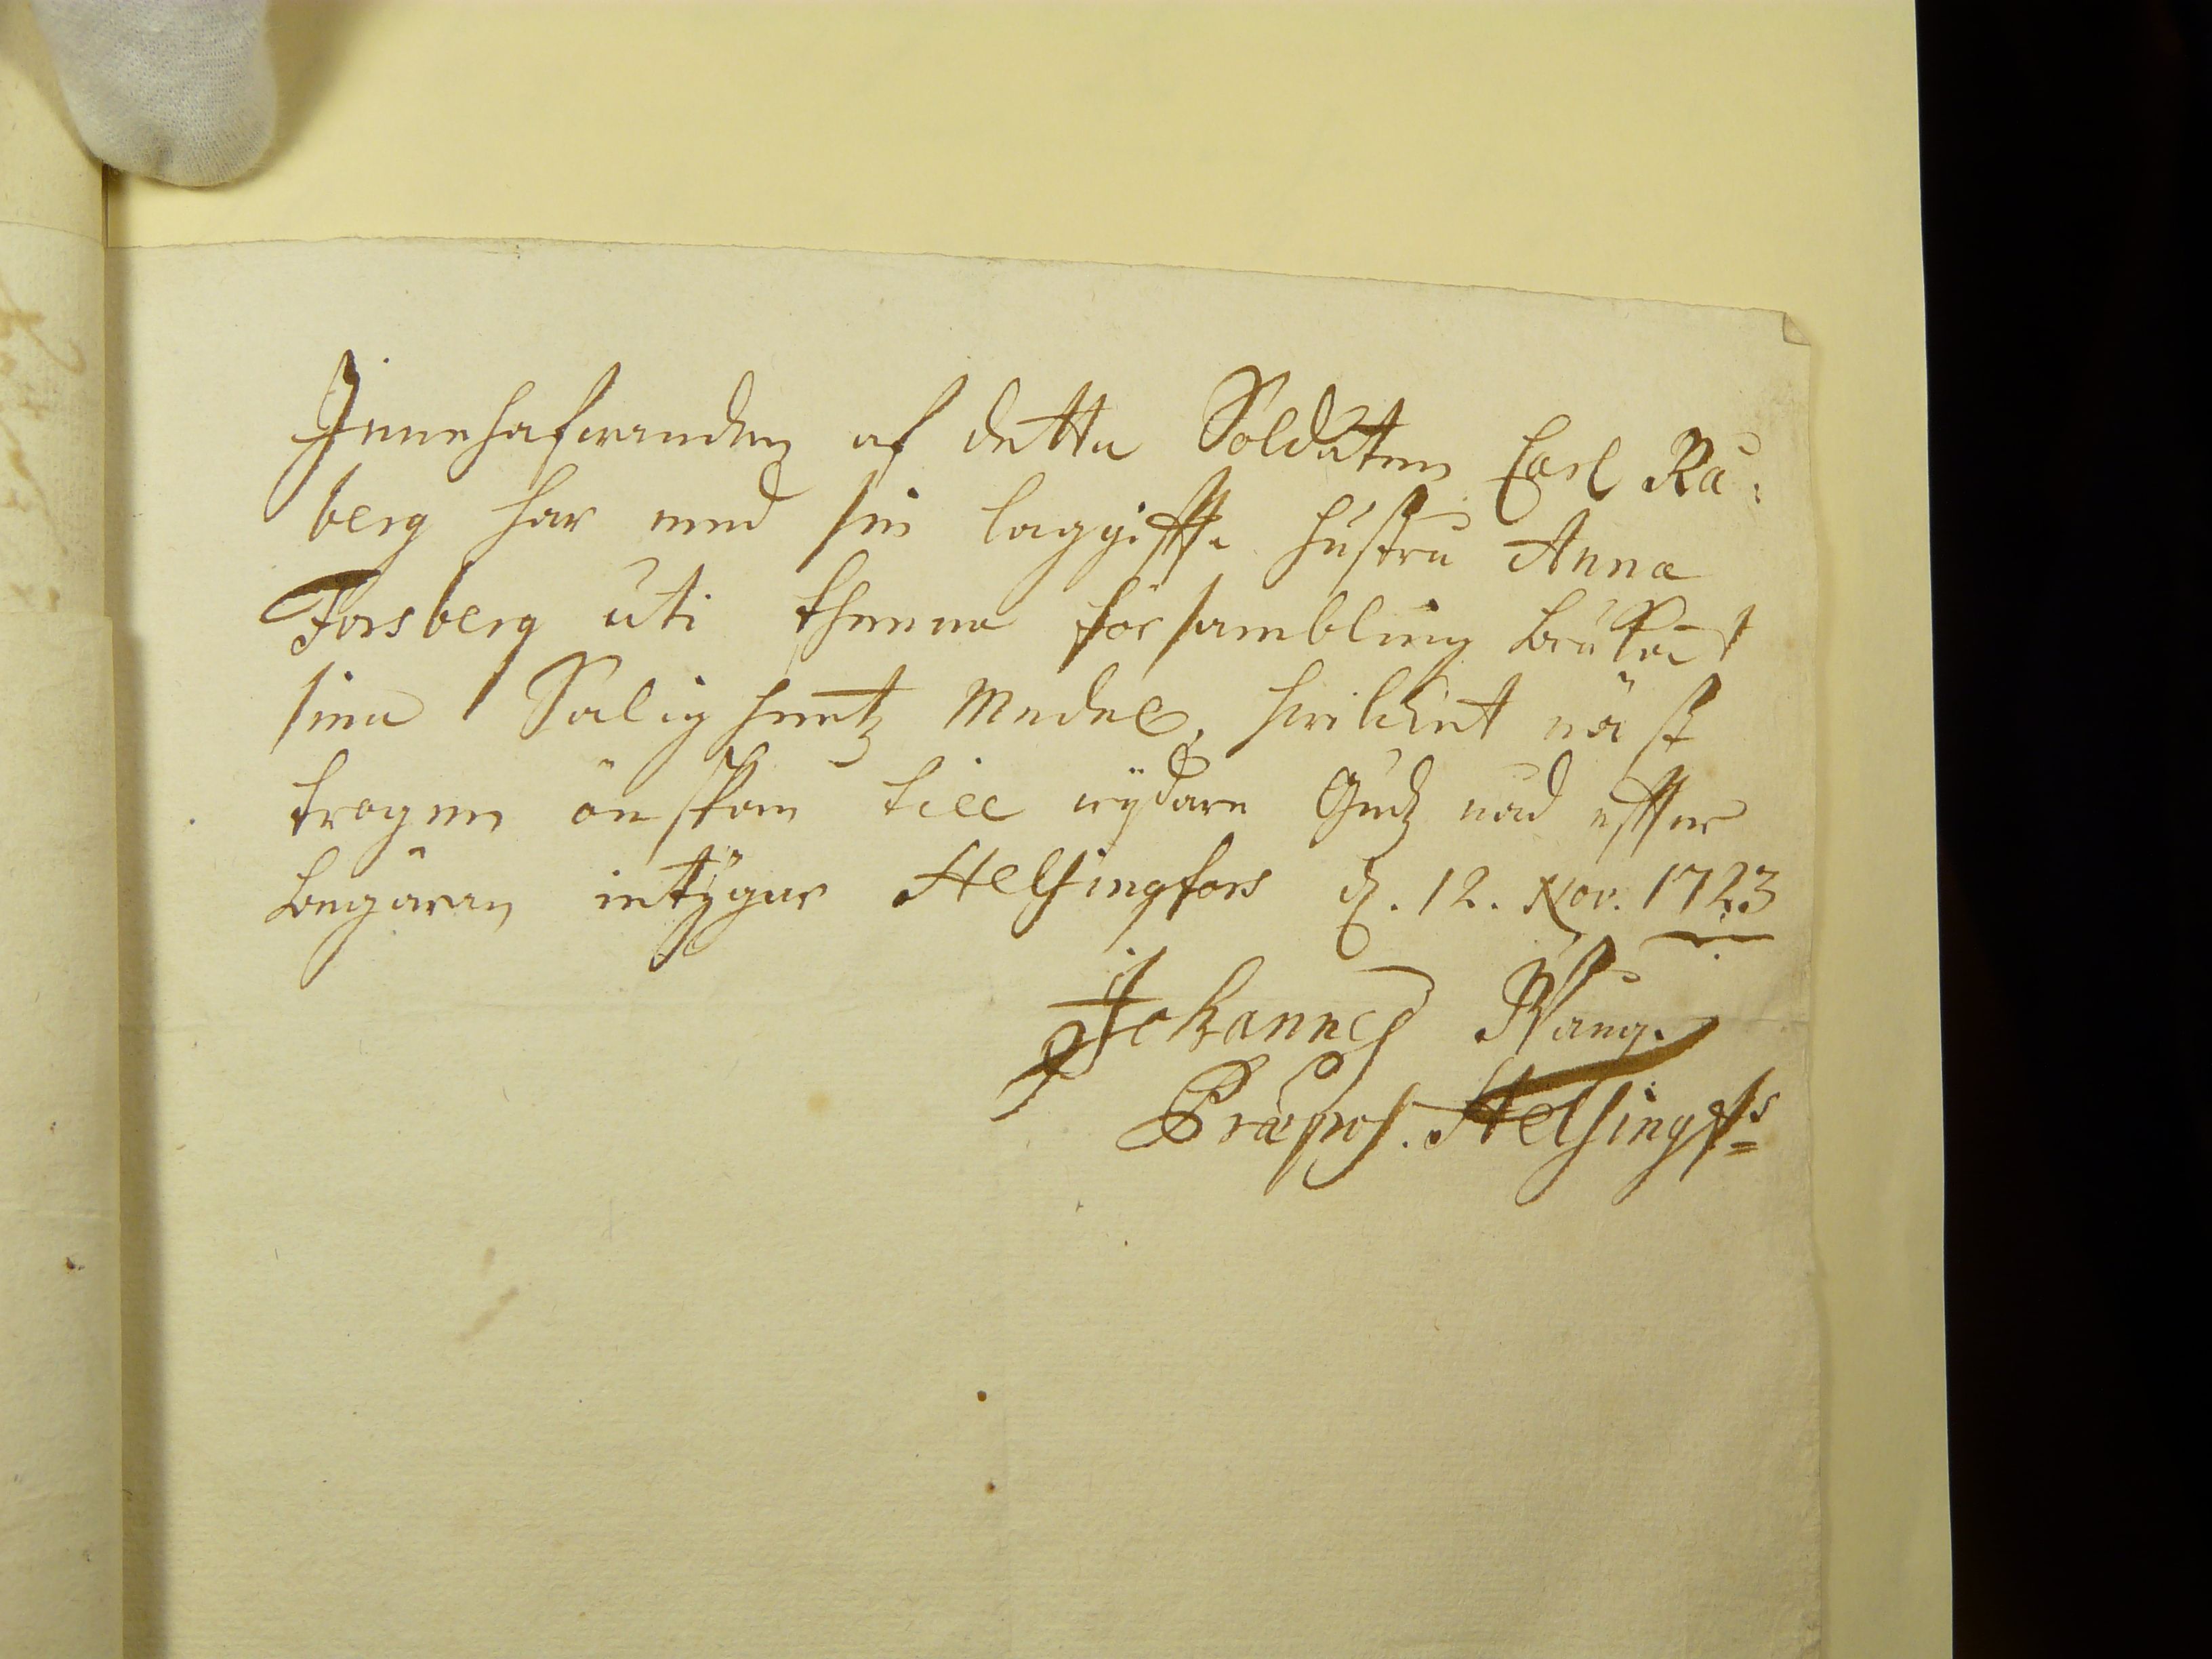 Innehafwanden af detta Soldaten Carl Ra:
berg har med sin laggiffte hustru Anna
Forsberg uti thenna försambling brukat
sina Saligheetz Medel, hwilket näst
trogen önskan till wÿdare Gudz nåd effter
begäran intÿgar Helsingfors d. 12. Nov. 1723
Johannes Wang.
Præpos. Helsingfs